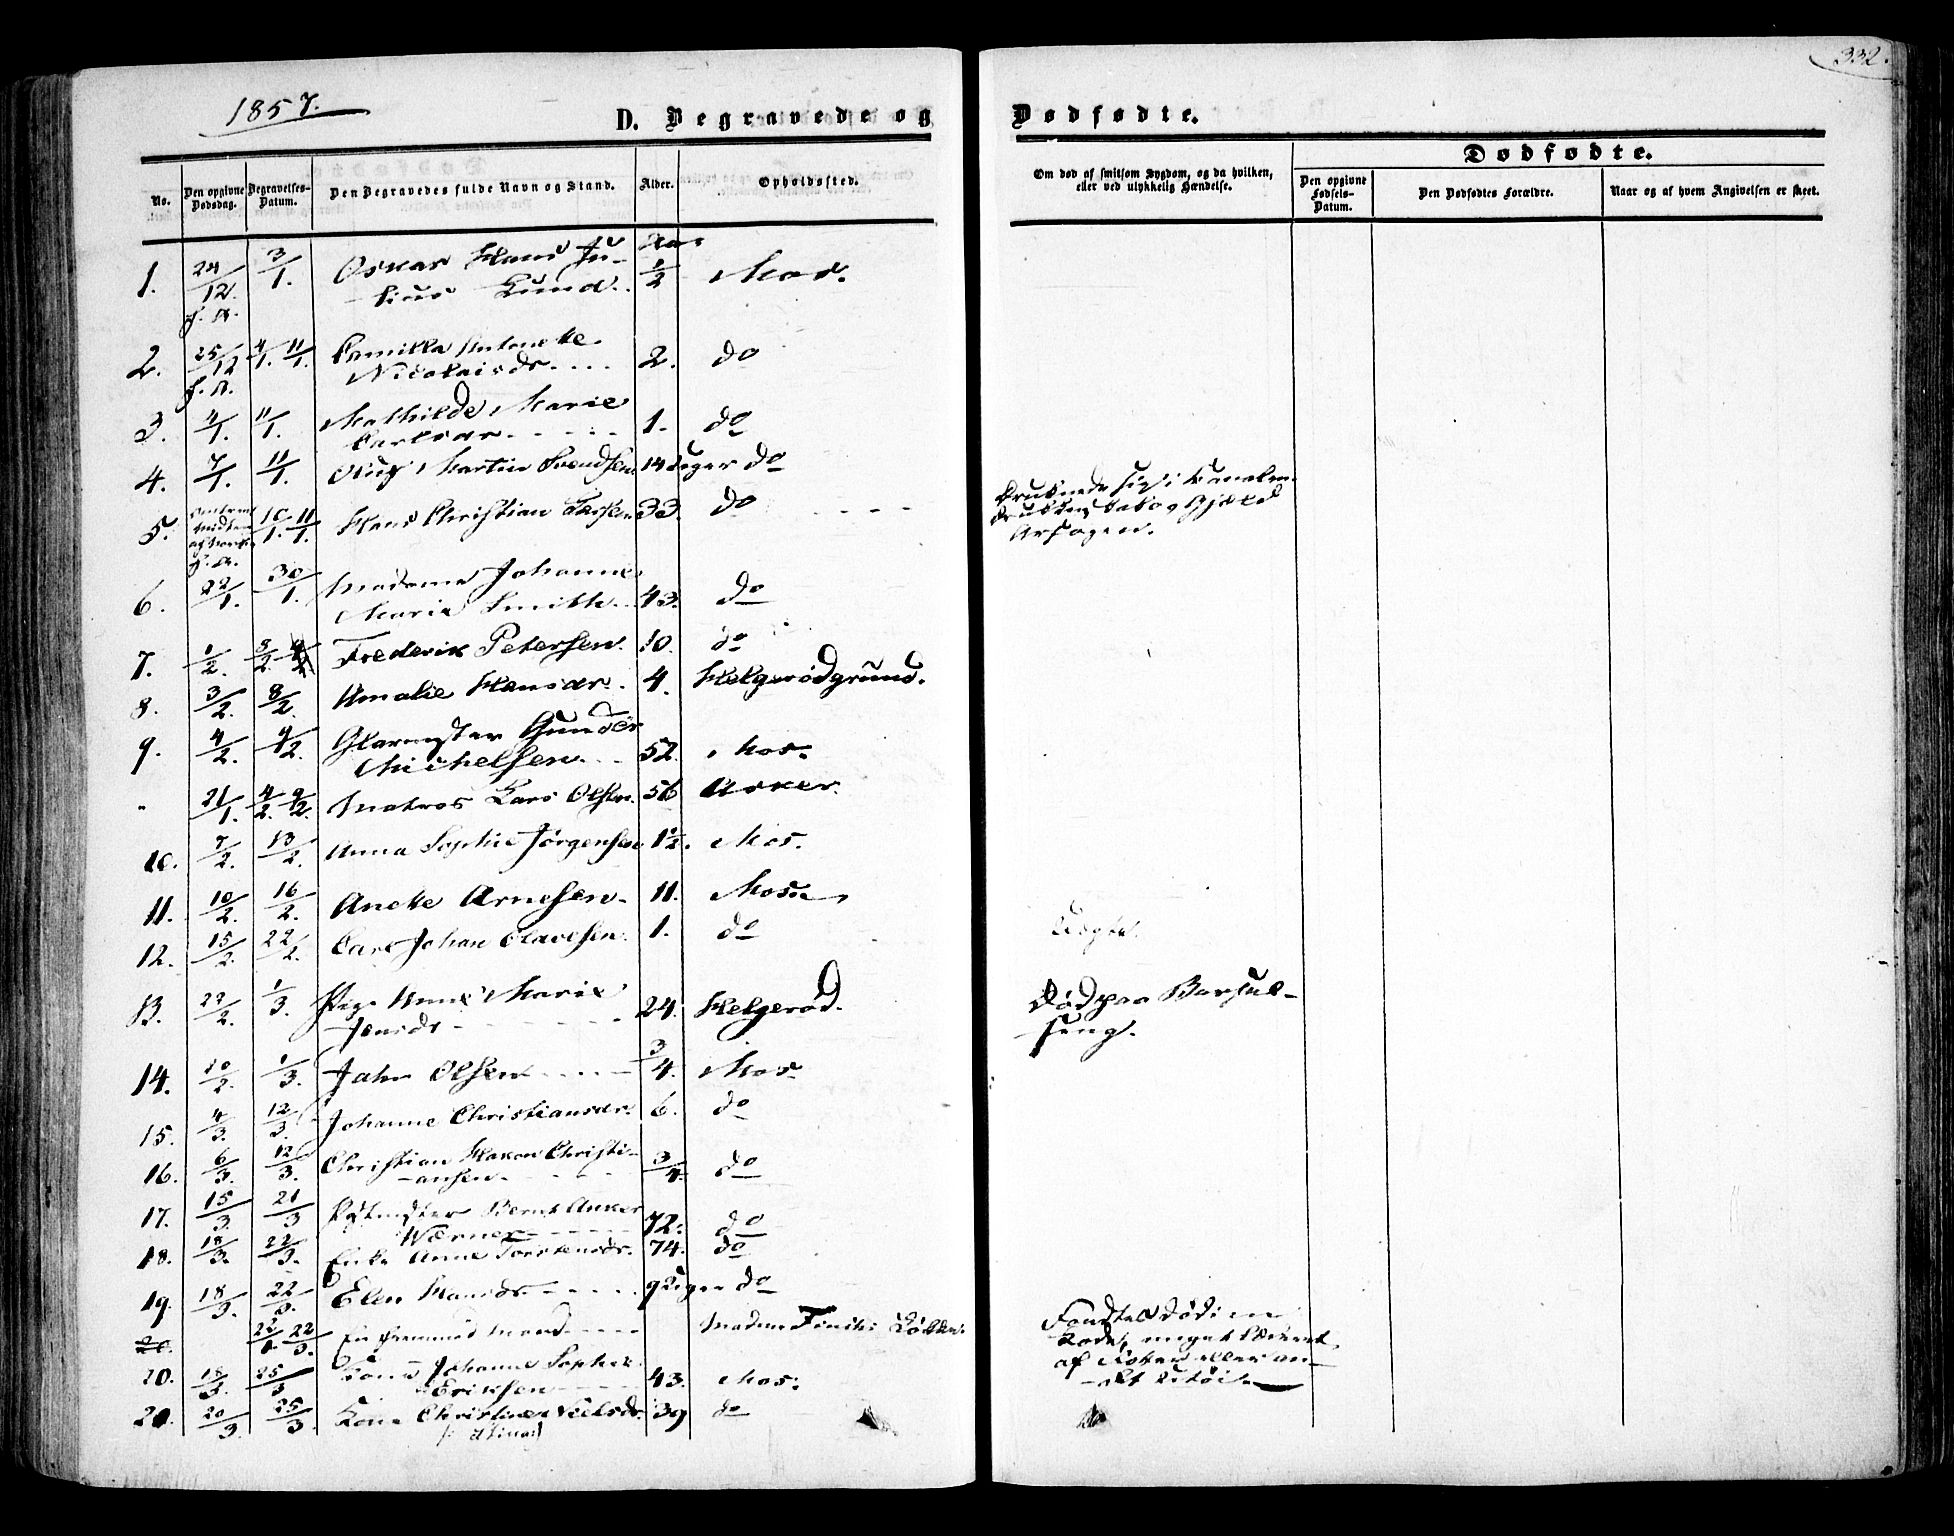 332.
1857.
D. Begravede og Dødfødte.
No.
Den opgivne Dødsdag.
Begravelses-Datum.
Den Begravedes fulde Navn og Stand.
Alder.
Opholdssted.
Om død af smitsom Sygdom, og da hvilken, eller ved ulykkelig Hændelse.
Dødfødte.
Den opgivne Fødsels-Datum.
Den Dødfødtes Forældre.
Naar og af hvem Angivelsen er skeet.
1. 24/12. f. A. 3/1. Oskar Hans Ju-
lius Lund. 1/2 Mos.
2. 25/12 f. A. 4/1. 11/1. Camilla
Nicolaisdr. 2. do
3. 4/1. 11/1. Mathilde Marie
Carlsdr. 1. do
4. 7/1. 11/1. Martin Svendsen 14 Uger do
5. 10/1. 11/1. Hans Christian 33. do
6. 22/1. 30/1. Madame Johanne
Marie Smith 43. do
7. 1/2. 8/2. Frederik Petersen. 10. do
8. 3/2. 8/2. Amalie Hansdr. 4. Helgerødgrund.
9. 4/2. 9/2. Glarmester Gunder
Michelsen 52. Mos.
" 21/1. 4/2. 9/2. Matros Lars Olsen. 56 Asker.
10. 7/2. 13/2. Anna Sophie Jörgensen 1 1/2. Mos.
11. 10/2. 16/2. Arnesen. 11. Moss
12. 15/2. 22/2. Carl Johan Olavesen. 1. do
13. 22/2. 1/3. Pige Anne Marie
Jensdr. 24. Helgerød. Død paa Barsel-
seng.
14. 20/2. 1/3. John Olsen 3/4. Mos
15. 4/3. 12/3. Johanne Christiansdr. 6. do
16. 6/3. 12/3. Christian Hakon Christi-
ansen. 3/4. do
17. 15/3. 21/3 Postmester Bernt Anker
Werner 72. do
18. 18/3. 22/3. Enke Anne Torstensdr. 74. do
19. 18/3. 22/3. Elen Hansdr. 9 Uger do
20. 22/3. En fremmed Mand Fandtes død i en
20. 18/3. 25/3 Kone Johanne Sophie
Eriksen 43. Mos.
20/3. 25/3. Kone Christine Nielsdr. 39 do